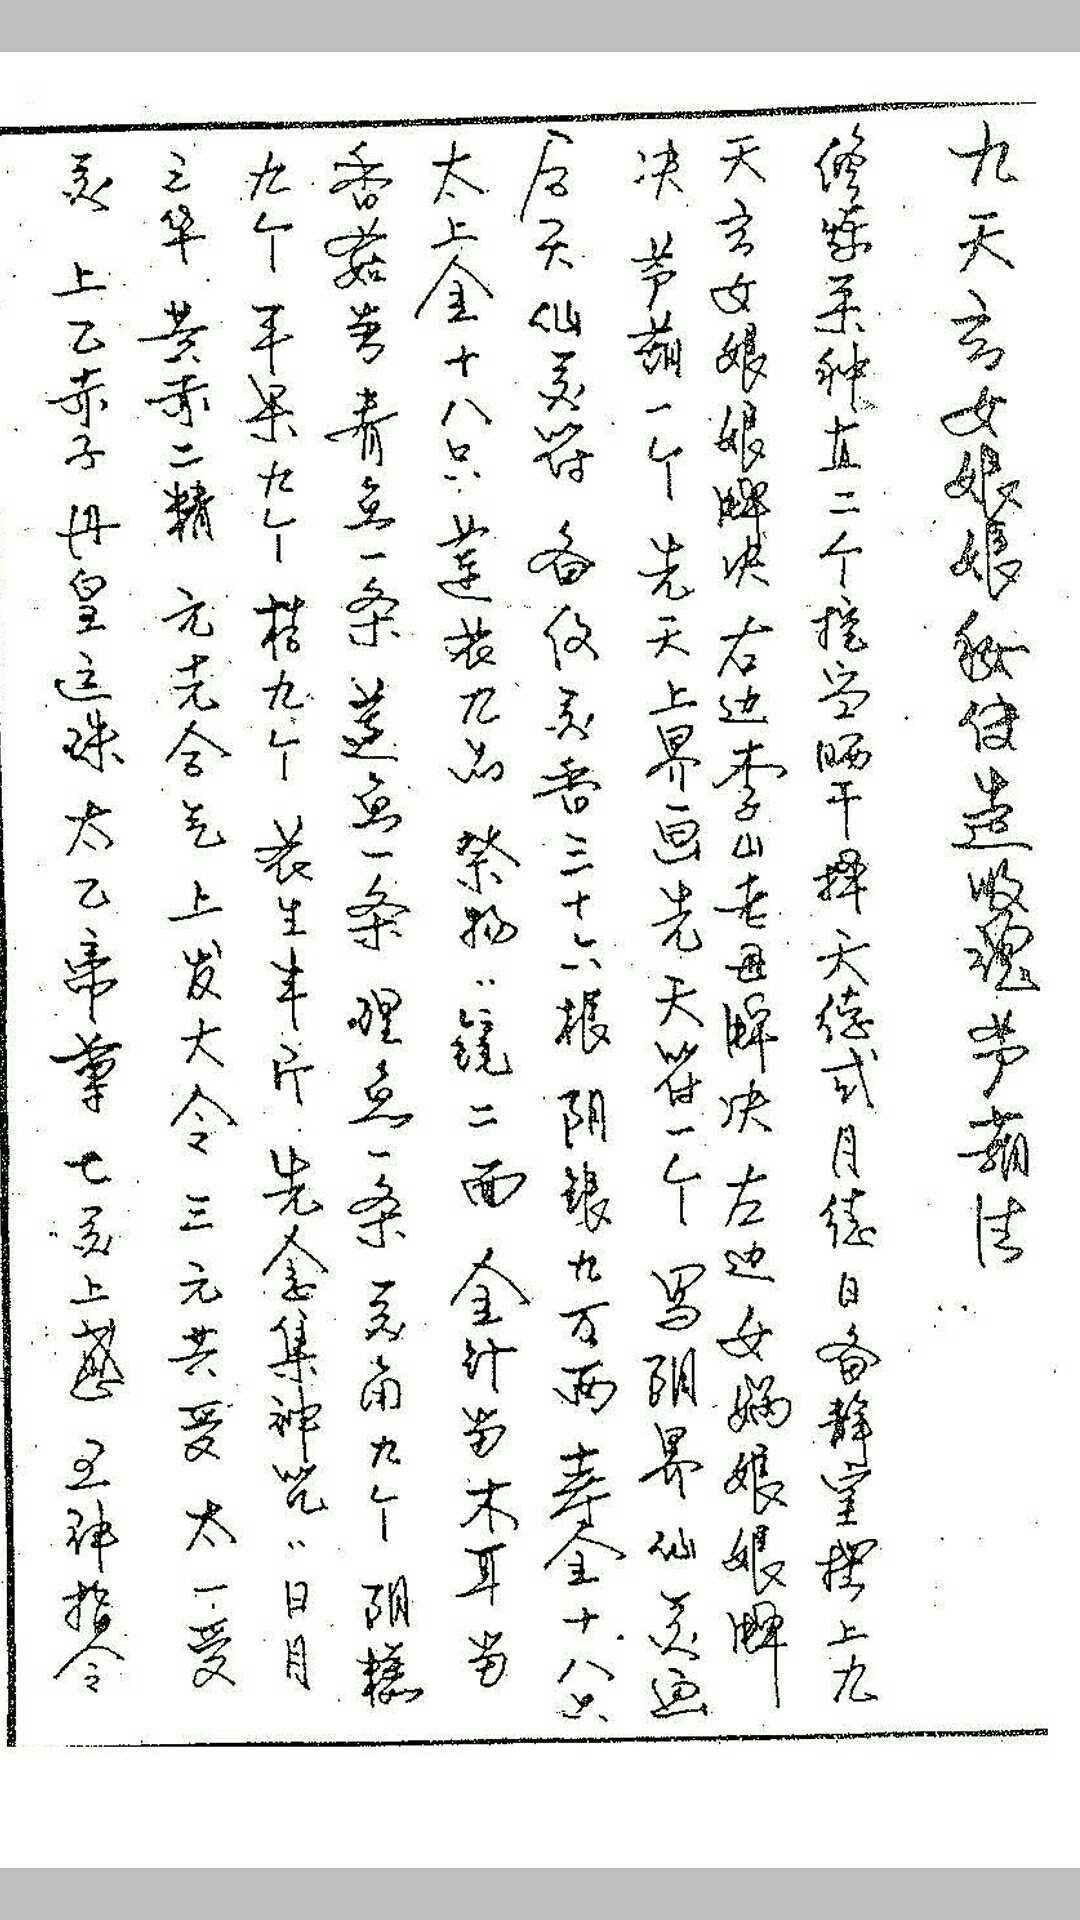 九天玄女娘娘秘传造收魂芦葫法
修炼茅种直二个挖空晒干择天德或月德日备静室摆上九
天玄女娘娘牌决右边李山老母牌决左边女娲娘娘牌
决 芦葫一个 先天上界画先天符一个 写阴界仙灵画
后天仙灵符 备修灵香三十六根 阴银九万两 寿金十八只
太上金十八只 莲衣九品 祭物:镜二面 金针当木耳当
香菇当青鱼一条 莲鱼一条 鲤鱼一条 灵角九个 阴
九个 平果九个 桔九个 花生半斤 先念集神咒:日月
三华 黄赤二精 元老合气 上发大令 三元共受 太一受
灵 上乙赤子 丹皇 珠 太乙帝 七灵上 五神指令